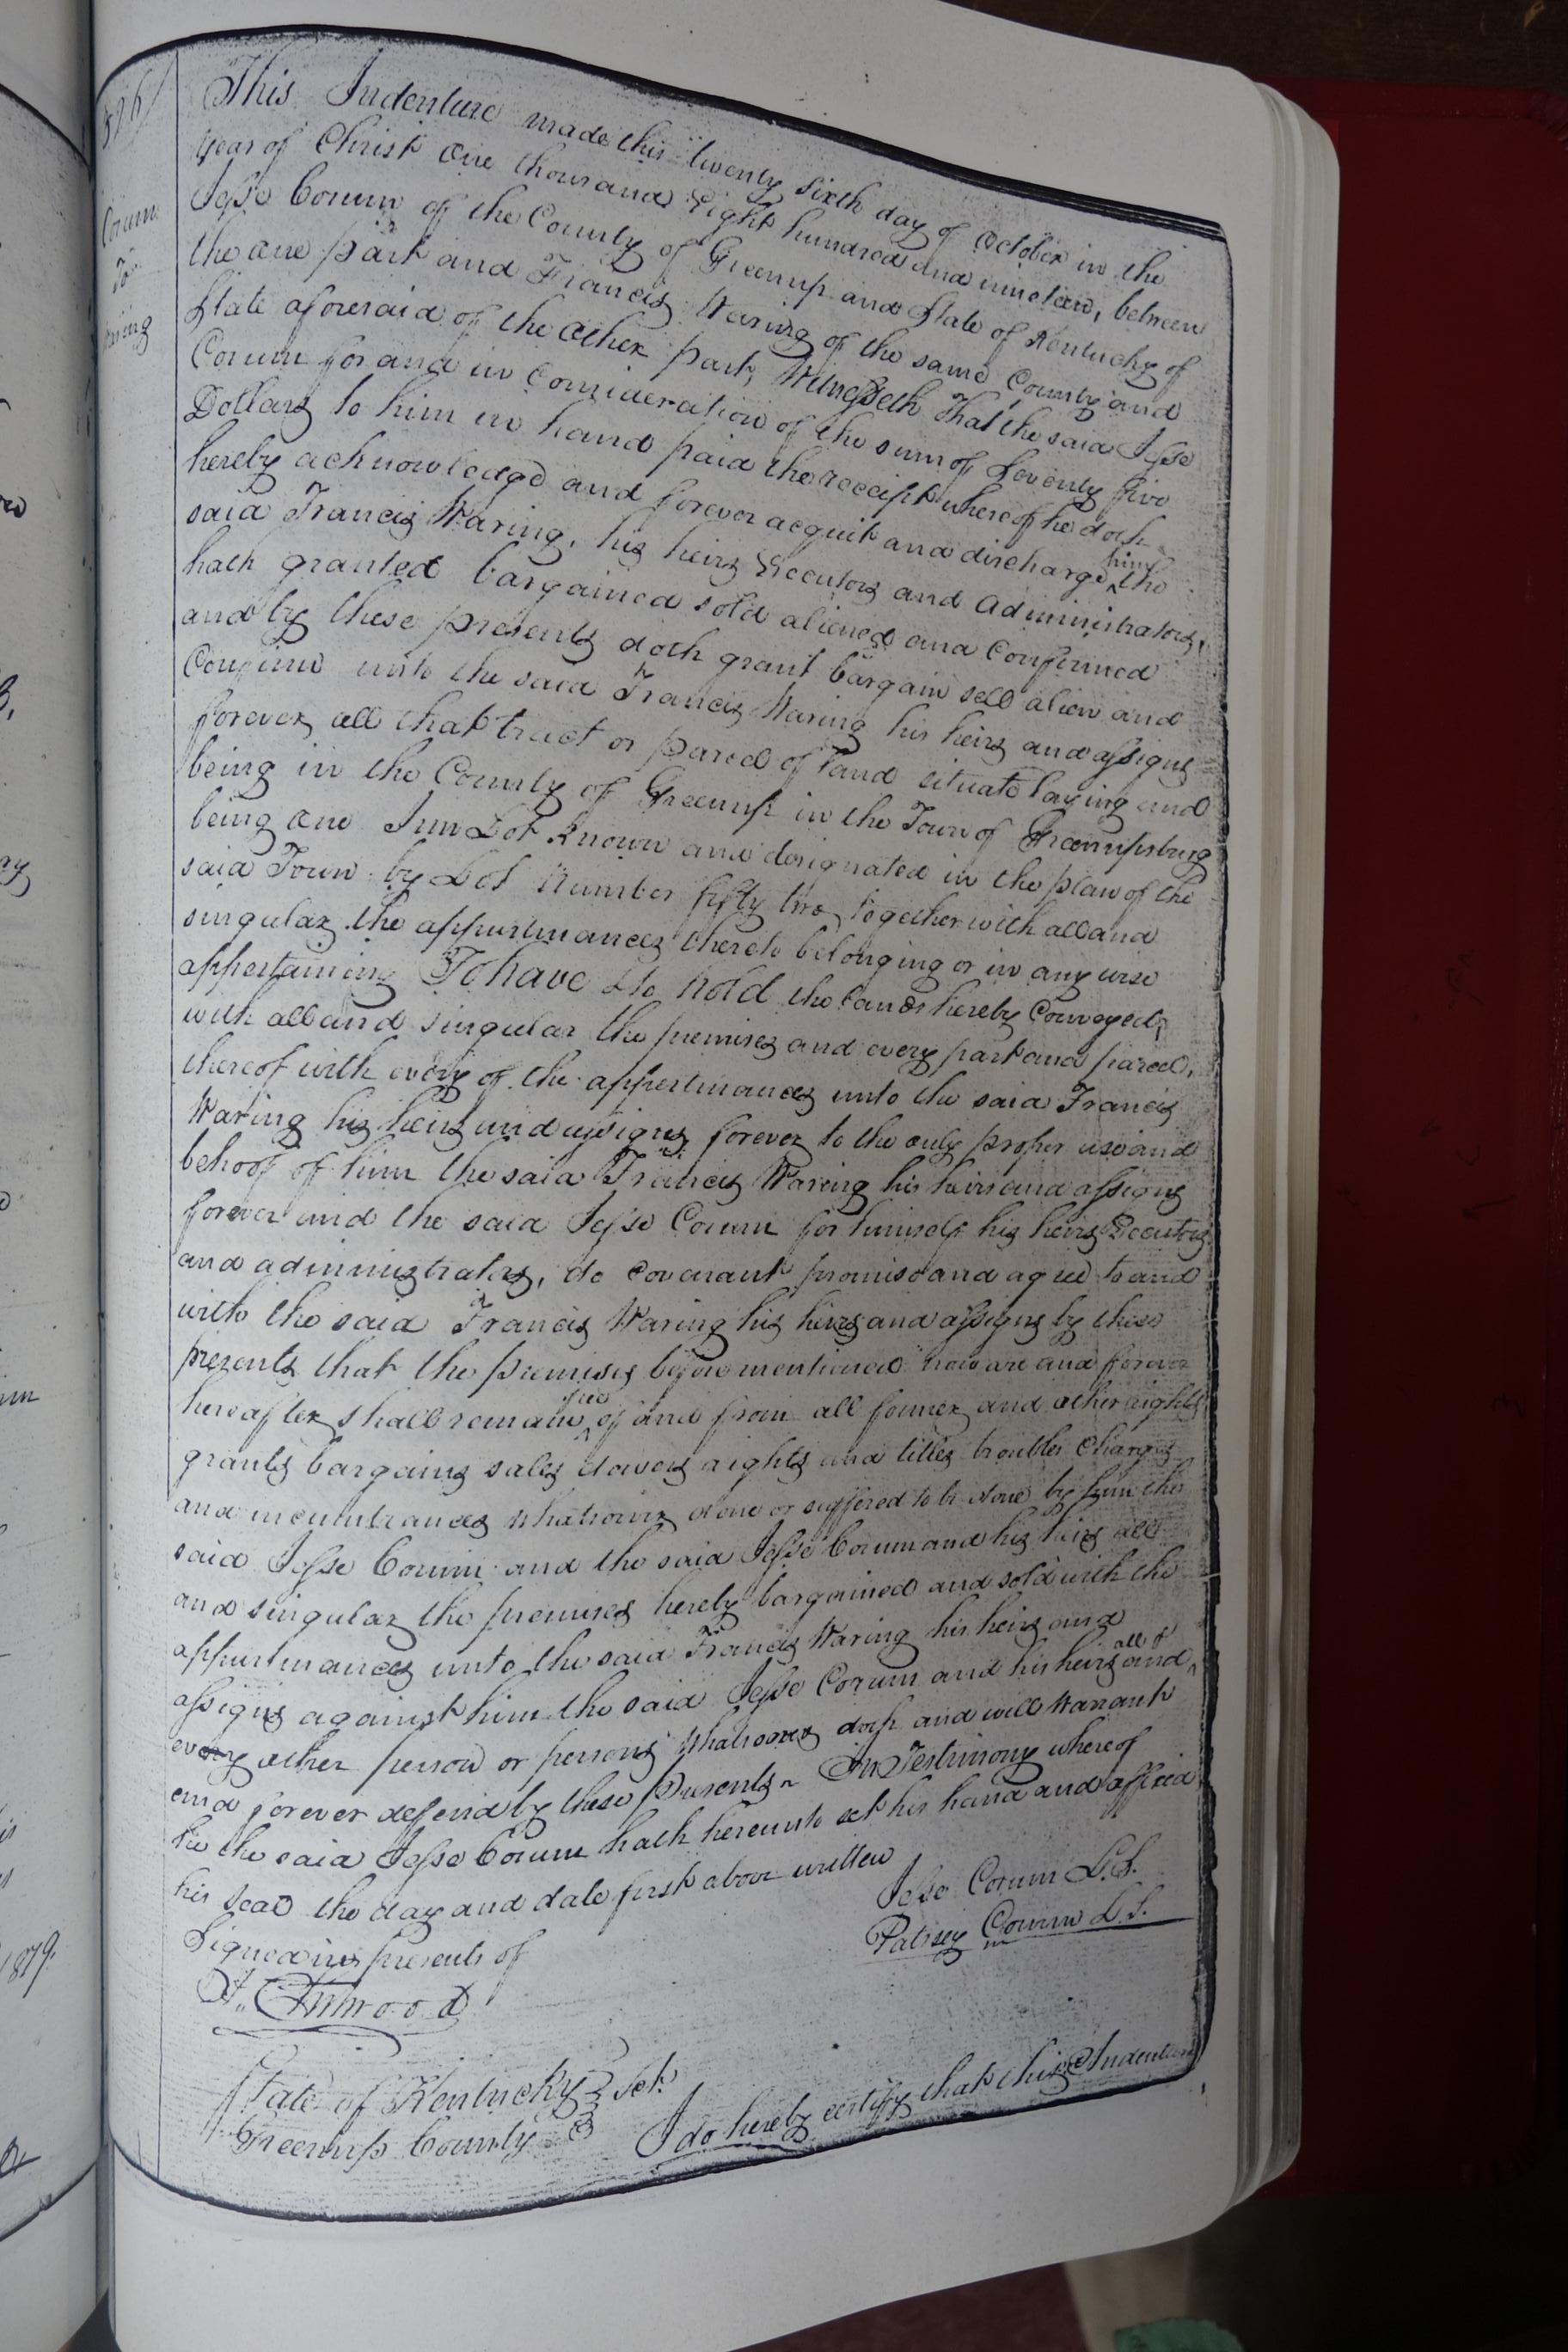 This Indenture made this twenty sixth day of October in the
year of Christ One thousand Eight hundred and nineteen, between
Jesse Corum of the County of Greenup and State of Kentucky of
the one part and Francis Waring of the same County and
State aforesaid of the other part, Witnesseth That the said Jesse
Corum for and in Consideration of the sum of Seventy five
Dollars to him in hand paid the receipt whereof he doth
hereby acknowledge and forever acquit and discharge him the
said Francis Waring, his heirs Executors and Administrators,
hath granted bargained sold aliened and Confirmed
and by these presents doth grant bargain sell alien and
Confirm unto the said Francis Waring his heirs and assigns
forever, all that tract or parcel of land situate laying and
being in the County of Greenup in the Town of Greenupsburg
being one Inn Lot known and designated in the plan of the
said Town by Lot Number fifty two together with all and
singular the appurtinances thereto belonging or in any wise
appertaining To have & to hold the lands hereby Conveyed,
with all and singular the premises and every part and parcel,
thereof with every of the appertinances unto the said Francis
Waring his heirs and assigns forever to the only proper use and
behoof of him the said Francis Waring his heirs and assigns
forever and the said Jesse Corum for himself his heirs Executors
and administrators, do covenant promise and agree to and
with the said Francis Waring his heirs and assigns by these
presents that the premises before mentioned now are and forever
hereafter shall remain free of and from all former and other rights
grants bargains sales dowers rights and titles troubles Charges
and incumbrances whatsoever done or suffered to be done by him the
said Jesse Corum and the said Jesse Corum and his heirs all
and singular the premises hereby bargained and sold with the
appurtinances unto the said Francis Waring his heirs and
assigns against him the said Jesse Corum and his heirs and all &
every other person or persons whatsoever doth and will Warrant
and forever defend by these presents In Testimony whereof
he the said Jesse Corum hath hereunto set his hand and affixed
his seal the day and date first above written
Jesse Corum L.S.
Patsey Corum L.S.
Signed in presents of
State of Kentucky Sct.
Greenup County
I do hereby certify that this Indenture
Corum
To
1879.